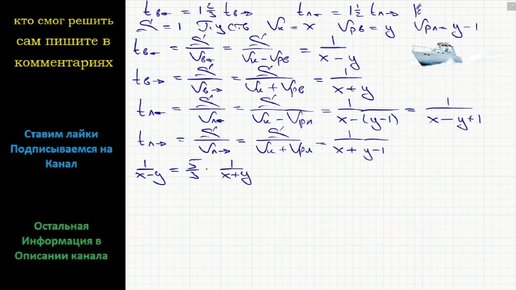 кто смог решить
сам пишите в
комментариях
Ставим лайки
Подписываемся на
Канал
Остальная
Информация в
Описании канала
t в← = 1 2/3 t в→   t л← = 1 1/2 t л→
S = 1 Пусть Vк = x Vрв = y Vрл = y - 1
t в← = S/Vв← = S/(Vк - Vрв) = 1/(x - y)
t в→ = S/Vв→ = S/(Vк + Vрв) = 1/(x + y)
t л← = S/Vл← = S/(Vк - Vрл) = 1/(x - (y - 1)) = 1/(x - y + 1)
t л→ = S/Vл→ = S/(Vк + Vрл) = 1/(x + y - 1)
1/(x-y) = 5/3 · 1/(x+y)